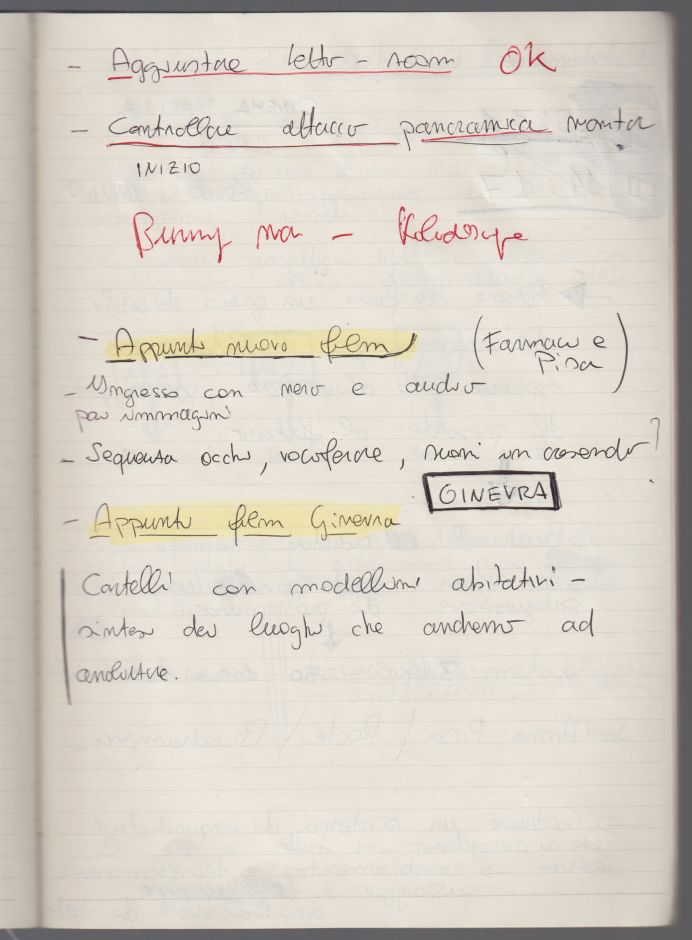 - Aggiustare letto - room OK
- Controllare attacco panoramica monitor
INIZIO
Bunny man - Kaleidoscope
- Appunti nuovo film (Farmaco e Pisa)
- Ingresso con nero e audio
poi immagini
- Sequenza occhi, vociferare, suoni in crescendo?
GINEVRA
- Appunti film Ginevra
Cartelli con modellini abitativi -
sintesi dei luoghi che andremo ad